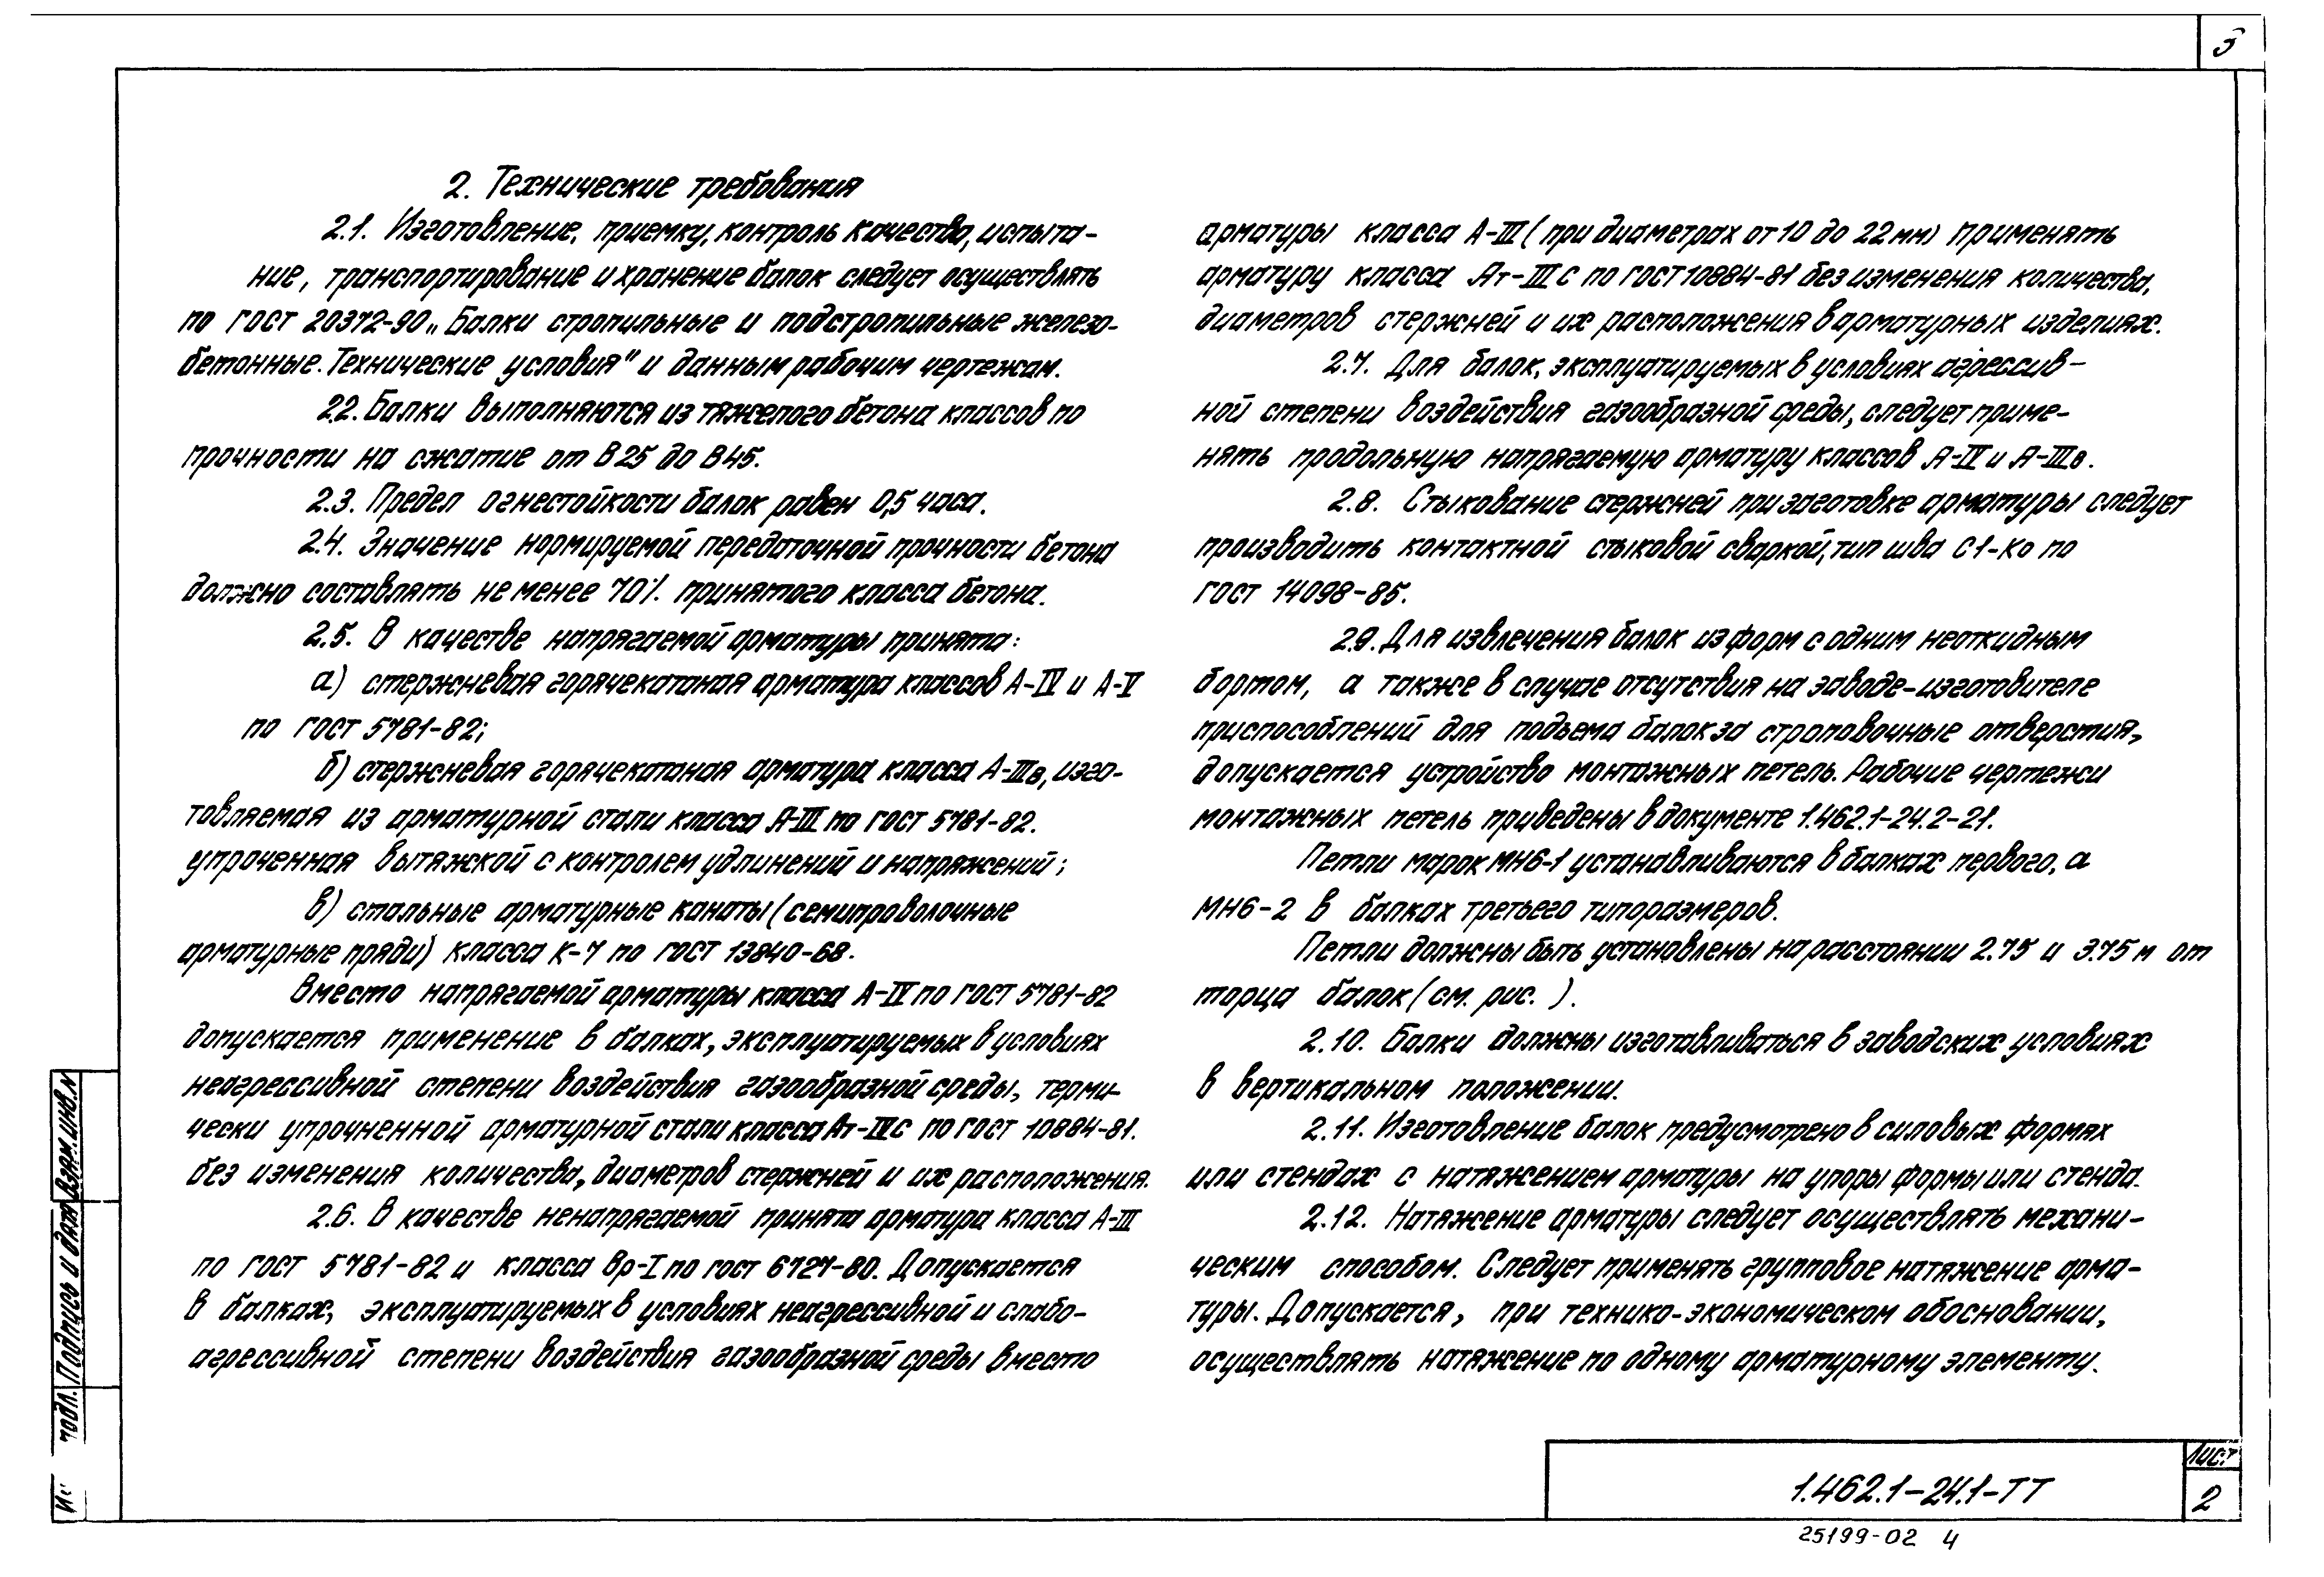 3
2. Технические требования
2.1. Изготовление, приемку, контроль качества, испыта-
ние, транспортирование и хранение балок следует осуществлять
по ГОСТ 20372-90 „Балки стропильные и подстропильные железо-
бетонные. Технические условия" и данным рабочим чертежам.
2.2. Балки выполняются из тяжелого бетона классов по
прочности на сжатие от В25 до В45.
2.3. Предел огнестойкости балок равен 0,5 часа.
2.4. Значение нормируемой передаточной прочности бетона
должно составлять не менее 70% принятого класса бетона.
2.5. В качестве напрягаемой арматуры принята:
а) стержневая горячекатаная арматура классов А-IV и А-V
по ГОСТ 5781-82;
б) стержневая горячекатаная арматура класса А-IIIв, изго-
товляемая из арматурной стали класса А-III по ГОСТ 5781-82.
упрочненная вытяжкой с контролем удлинений и напряжений;
в) стальные арматурные канаты (семипроволочные
арматурные пряди) класса К-7 по ГОСТ 13840-68.
Вместо напрягаемой арматуры класса А-IV по ГОСТ 5781-82
допускается применение в балках, эксплуатируемых в условиях
неагрессивной степени воздействия газообразной среды, терми-
чески упрочненной арматурной стали класса Ат-IVс по ГОСТ 10884-81.
без изменения количества, диаметров стержней и их расположения.
2.6. В качестве ненапрягаемой принята арматура класса А-III
по ГОСТ 5781-82 и класса Вр-I по ГОСТ 6727-80. Допускается
в балках, эксплуатируемых в условиях неагрессивной и слабо-
агрессивной степени воздействия газообразной среды вместо
арматуры класса А-III (при диаметрах от 10 до 22 мм) применять
арматуру класса Ат-IIIС по ГОСТ 10884-81 без изменения количества,
диаметров стержней и их расположения в арматурных изделиях.
2.7. Для балок, эксплуатируемых в условиях агрессив-
ной степени воздействия газообразной среды, следует приме-
нять продольную напрягаемую арматуру классов А-IV и А-IIIв.
2.8. Стыкование стержней при заготовке арматуры следует
производить контактной стыковой сваркой, тип шва С1-Ко по
ГОСТ 14098-85.
2.9. Для извлечения балок из форм с одним неоткидным
бортом, а также в случае отсутствия на заводе-изготовителе
приспособлений для подъема балок за строповочные отверстия,
допускается устройство монтажных петель. Рабочие чертежи
монтажных петель приведены в документе 1.462.1-24.2-21.
Петли марок МН6-1 устанавливаются в балках первого, а
МН6-2 в балках третьего типоразмеров.
Петли должны быть установлены на расстоянии 2.75 и 3.75 м от
торца балок (см. рис. ).
2.10. Балки должны изготавливаться в заводских условиях
в вертикальном положении.
2.11. Изготовление балок предусмотрено в силовых формах
или стендах с натяжением арматуры на упоры формы или стенда.
2.12. Натяжение арматуры следует осуществлять механи-
ческим способом. Следует применять групповое натяжение арма-
туры. Допускается, при технико-экономическом обосновании,
осуществлять натяжение по одному арматурному элементу.
Взам. инв. №
Подпись и дата
подл.
1.462.1-24.1-ТТ
Лист
2
25199-02 4